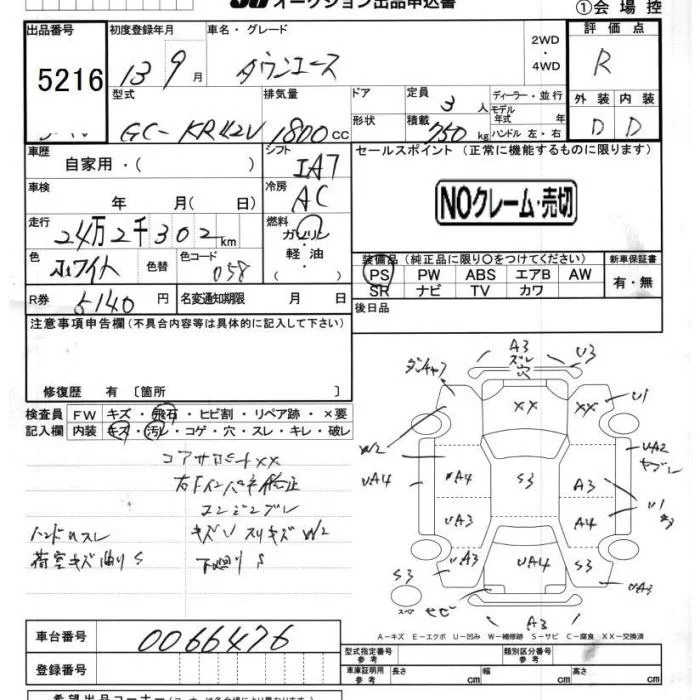 オークション出品申込書
①会場控
出品番号 初度登録年月 車名・グレード 2WD・4WD 評価点
5216 13 9月 タウンエース R
型式 排気量 ドア 定員 3人 ディーラー・並行
モデル年式 年 外装 内装
GC-KR42V 1800cc 形状 積載 750kg ハンドル 左・右 D D
車歴 シフト セールスポイント(正常に機能するものに限ります)
自家用・( ) IA7
車検 冷房
年 月( 日) AC
NOクレーム・売切
走行 燃料
24万2千302km ガソリン・軽油・( )
色 色替 色コード 装備品(純正品に限り○をつけてください) 新車保証書
ホワイト 058 PS PW ABS エアB AW 有・無
SR ナビ TV カワ
R券 5140円 名変通知期限 月 日 後日品
注意事項申告欄(不具合内容等は具体的に記入して下さい)
修復歴 有〔箇所 〕
検査員 FW キズ・飛石・ヒビ割・リペア跡・×要
記入欄 内装 キズ・汚レ・コゲ・穴・スレ・キレ・破レ
コアサポートXX
エンジンブレ
ハンドルスレ キズU スリキズ W2
荷室キズ曲りS 下廻りS
A3
ズレ
穴
U3
XX XX U1
W2 UA2
UA4 A4 S3 A3 U1
UA3 A4
UA3 UA4 S3
S3 UA3
スペ サビ A3
A-キズ E-エクボ U-凹み W-補修跡 S-サビ C-腐食 XX-交換済
車台番号 0066476
型式指定番号 参考 類別区分番号 参考
登録番号 車庫証明用 参考 長さ cm 幅 cm 高さ cm
希望出品コーナー